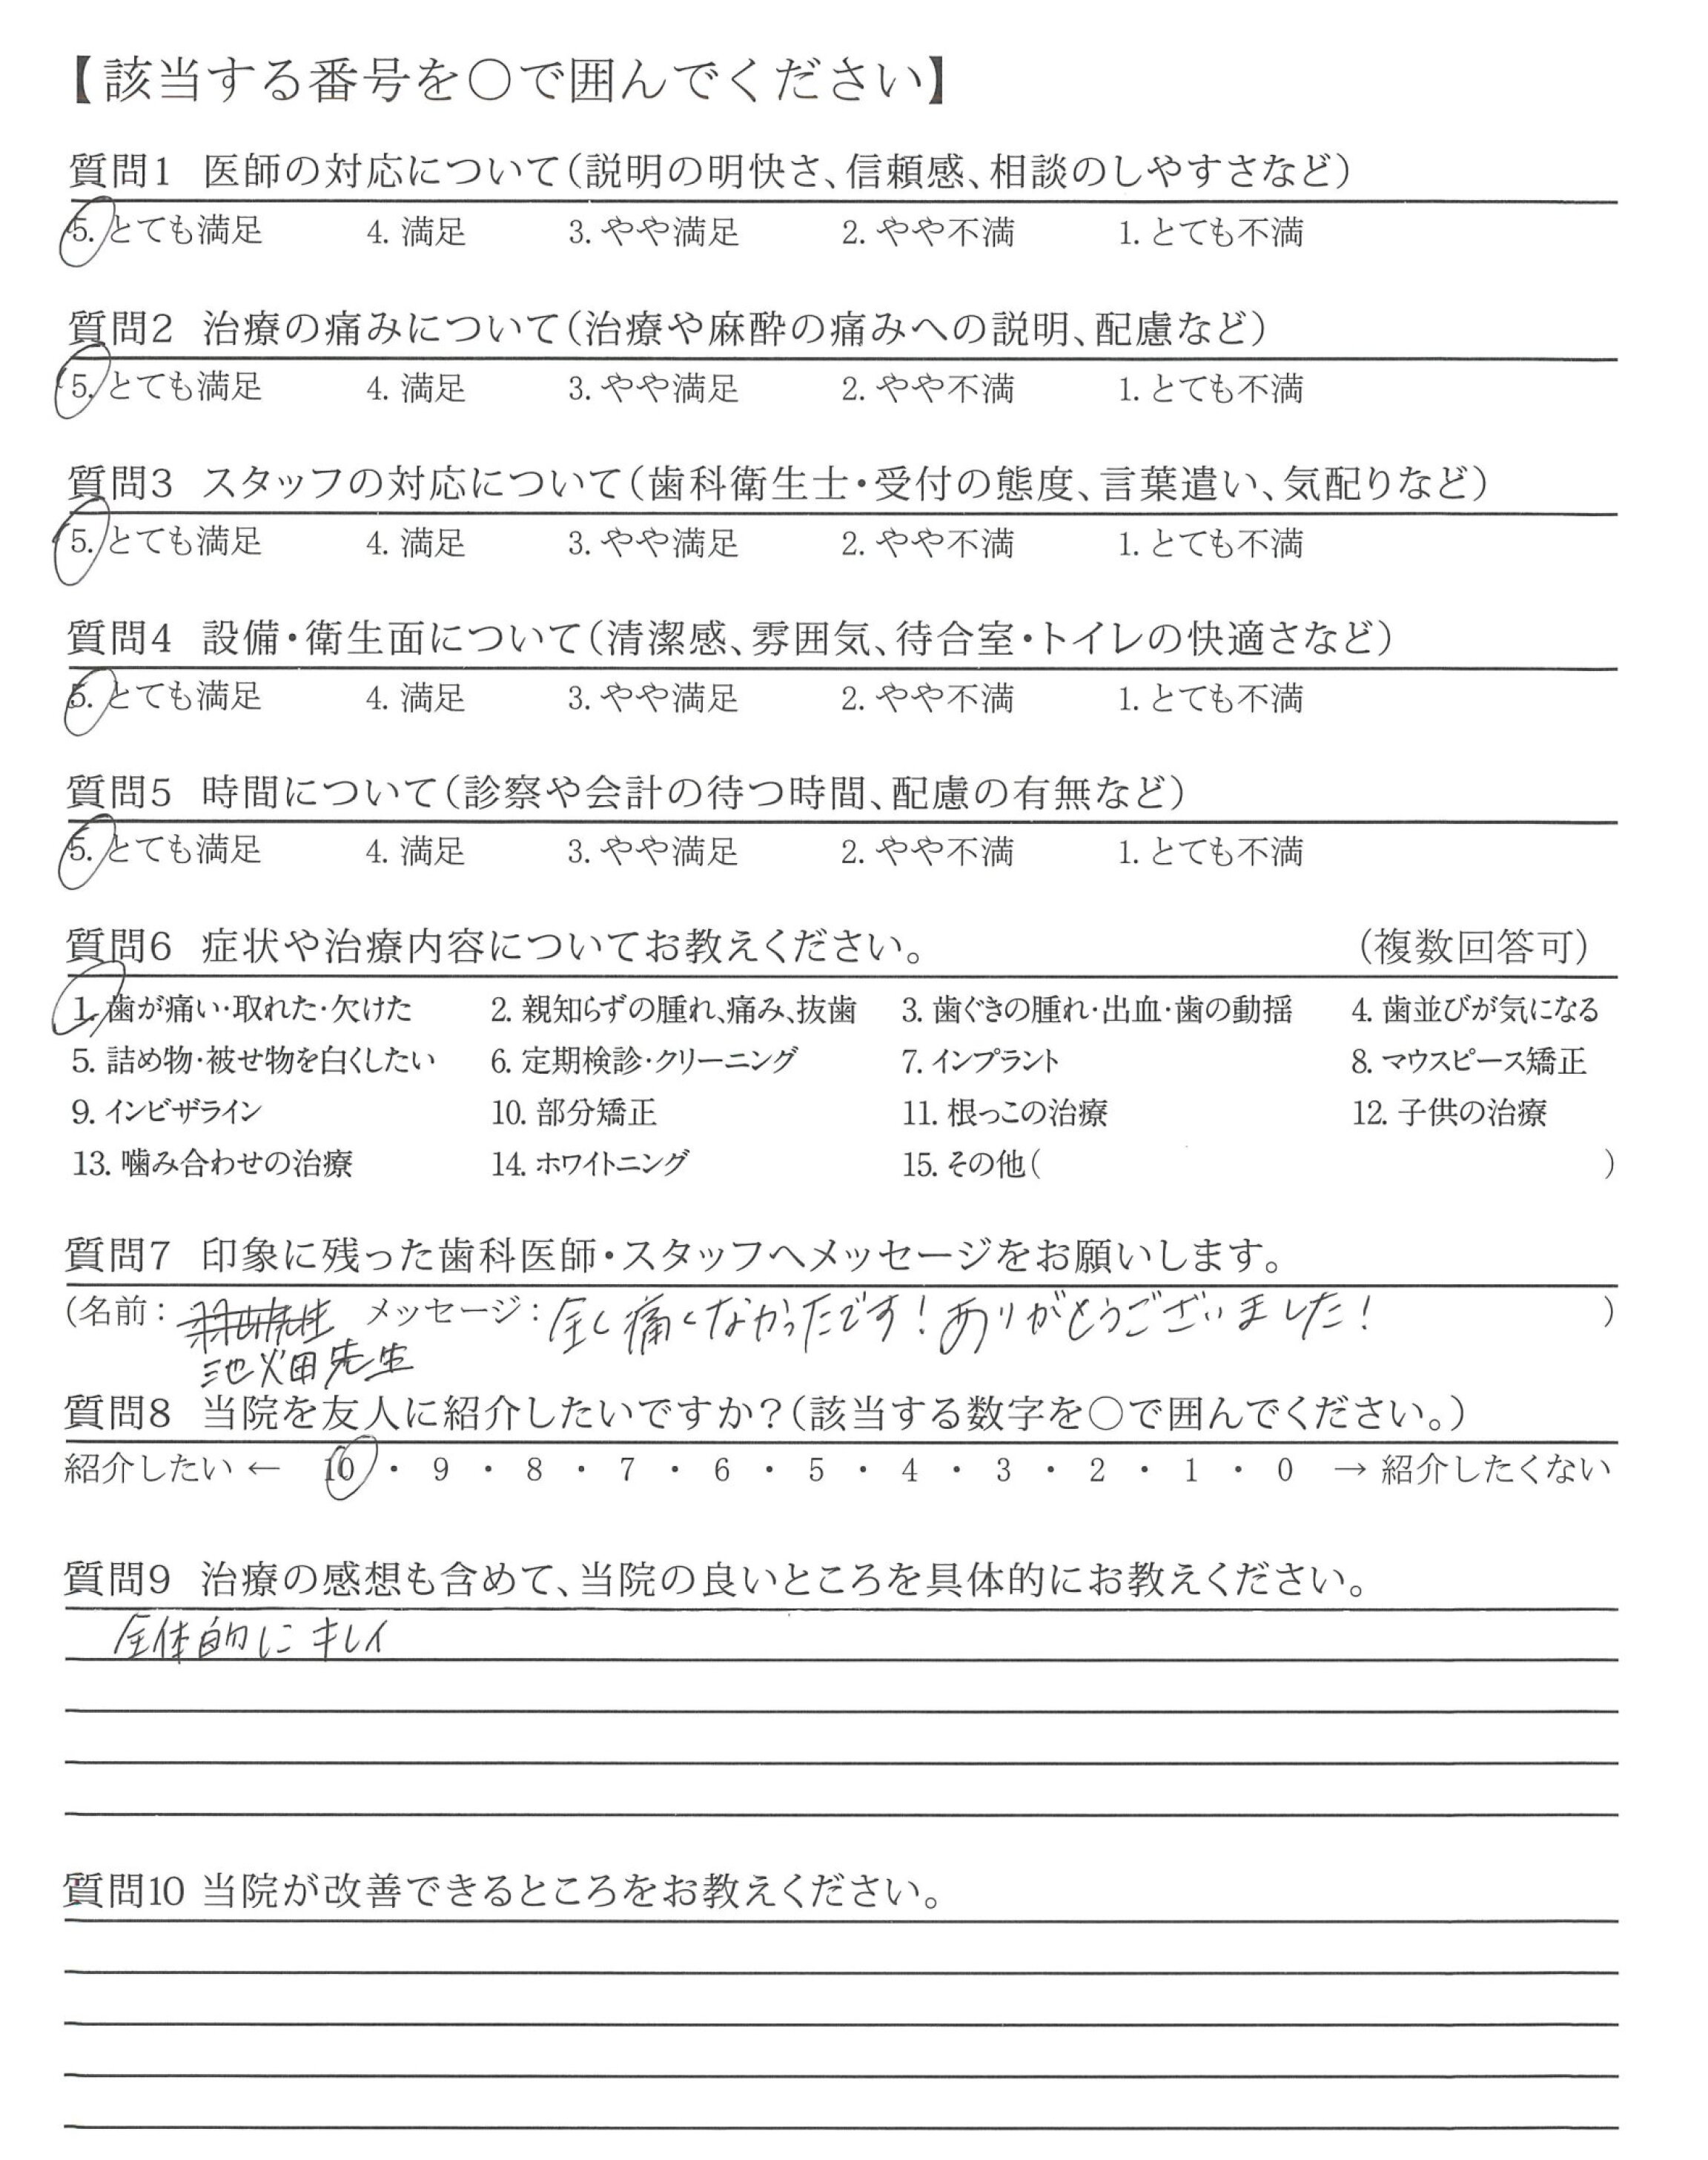 【該当する番号を〇で囲んでください】
質問1 医師の対応について（説明の明快さ、信頼感、相談のしやすさなど）
5. とても満足 4. 満足 3. やや満足 2. やや不満 1. とても不満
質問2 治療の痛みについて（治療や麻酔の痛みへの説明、配慮など）
5. とても満足 4. 満足 3. やや満足 2. やや不満 1. とても不満
質問3 スタッフの対応について（歯科衛生士・受付の態度、言葉遣い、気配りなど）
5. とても満足 4. 満足 3. やや満足 2. やや不満 1. とても不満
質問4 設備・衛生面について（清潔感、雰囲気、待合室・トイレの快適さなど）
5. とても満足 4. 満足 3. やや満足 2. やや不満 1. とても不満
質問5 時間について（診察や会計の待つ時間、配慮の有無など）
5. とても満足 4. 満足 3. やや満足 2. やや不満 1. とても不満
質問6 症状や治療内容についてお教えください。 （複数回答可）
1. 歯が痛い・取れた・欠けた 2. 親知らずの腫れ、痛み、抜歯 3. 歯ぐきの腫れ・出血・歯の動揺 4. 歯並びが気になる
5. 詰め物・被せ物を白くしたい 6. 定期検診・クリーニング 7. インプラント 8. マウスピース矯正
9. インビザライン 10. 部分矯正 11. 根っこの治療 12. 子供の治療
13. 噛み合わせの治療 14. ホワイトニング 15. その他（ ）
質問7 印象に残った歯科医師・スタッフへメッセージをお願いします。
（名前： メッセージ：全く痛くなかったです！ありがとうございました！ ）
池畑先生
質問8 当院を友人に紹介したいですか？（該当する数字を〇で囲んでください。）
紹介したい ← 10 ・ 9 ・ 8 ・ 7 ・ 6 ・ 5 ・ 4 ・ 3 ・ 2 ・ 1 ・ 0 → 紹介したくない
質問9 治療の感想も含めて、当院の良いところを具体的にお教えください。
全体的にキレイ
質問10 当院が改善できるところをお教えください。